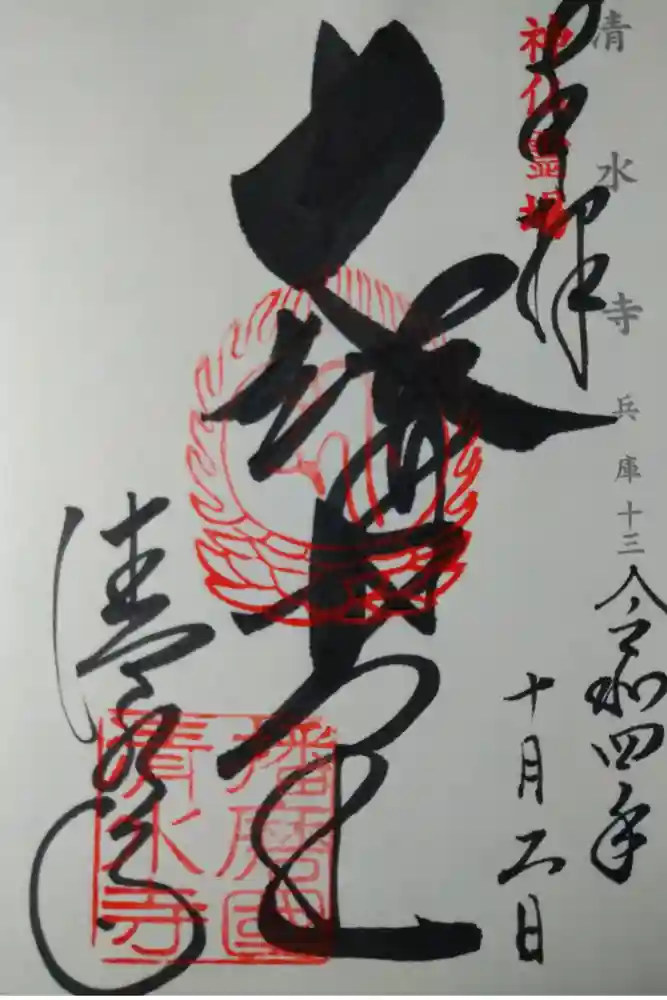 清水寺 兵庫十三
奉拝
神仏霊場
令和四年
十月二日
大講堂
清水寺
播磨國
清水寺